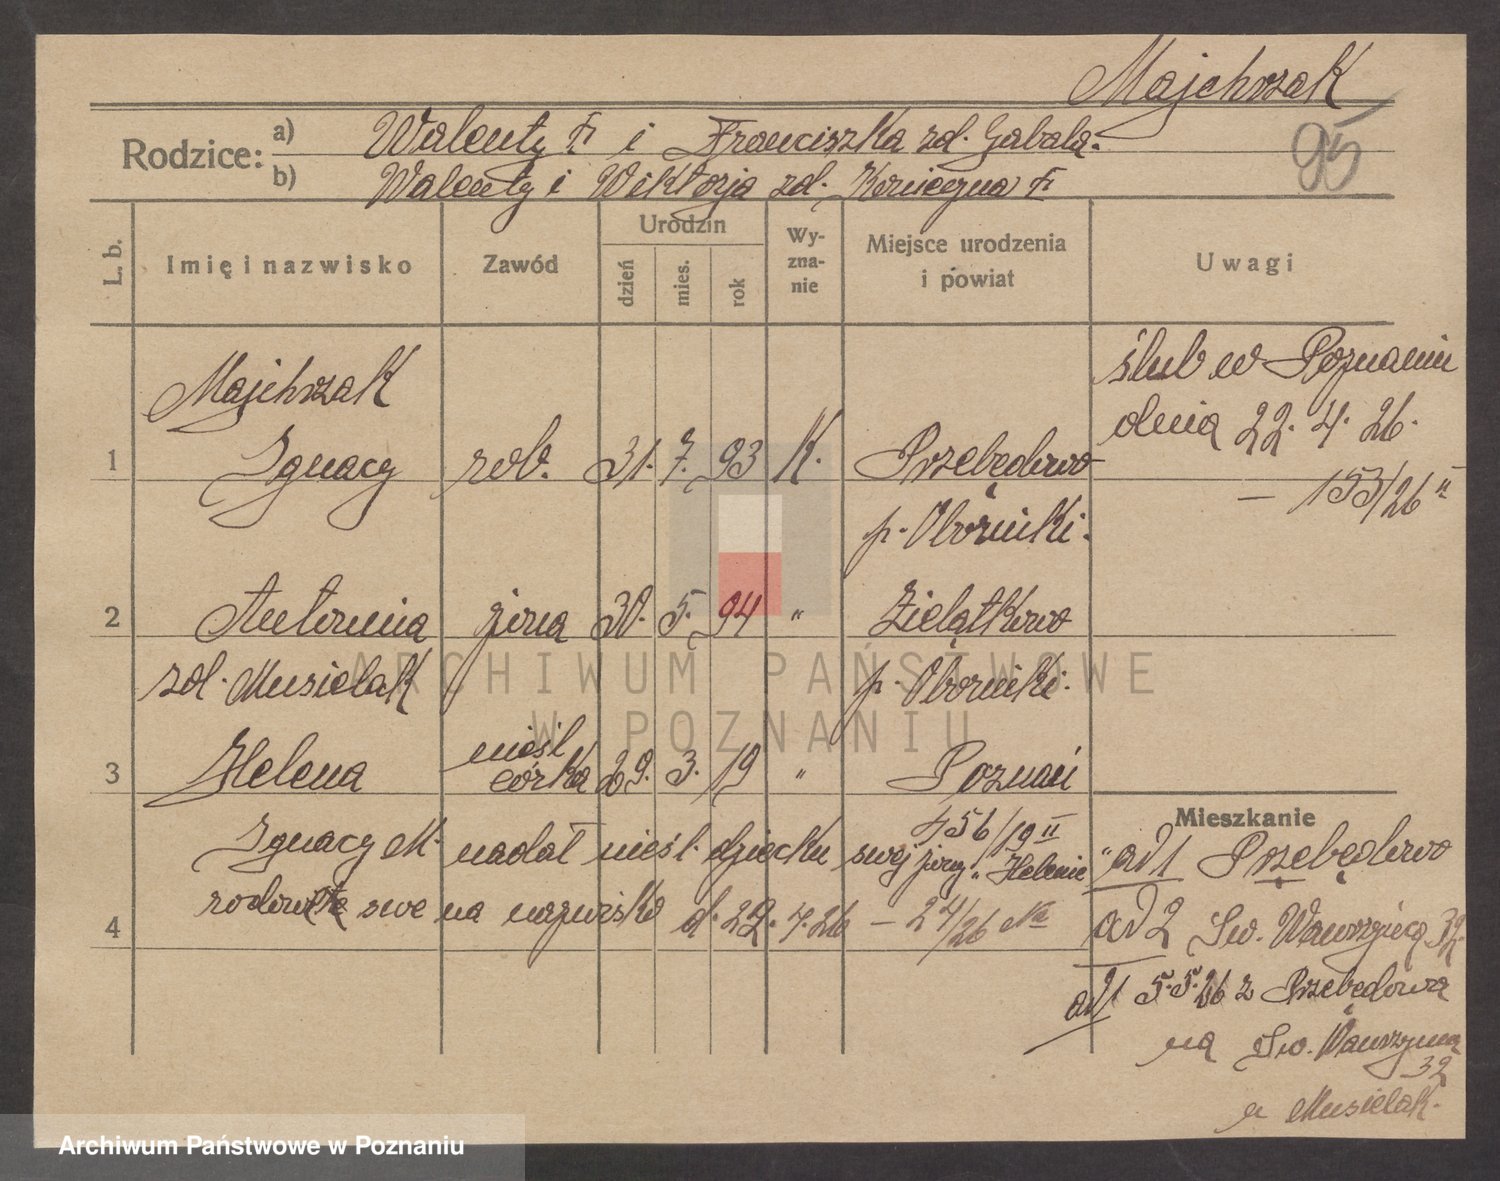 Majchrzak
95
Rodzice: a) Walenty † i Franciszka zd. Gabala.
b) Walenty i Wiktorja zd. Konieczna †
L. b.
Imię i nazwisko
Zawód
Urodzin
dzień
mies.
rok
Wy-
zna-
nie
Miejsce urodzenia
i powiat
Uwagi
Majchrzak
ślub w Poznaniu
dnia 22. 4. 26.
1 Ignacy rob. 31. 7. 93 K. Przebędowo
— 153/26 II
p. Oborniki.
2 Antonina żona 30. 5. 94 " Zielątkowo
zd. Musielak p. Oborniki.
nieśl
3 Helena córka 29. 3. 19 " Poznań
456/19 II
Mieszkanie
Ignacy M. nadał nieśl. dziecku swej żony „Helenie"
rodowe swe na nazwisko d. 22. 4. 26 — 24/26
4
ad 1 Przebędowo
ad 2 Św. Wawrzyńca 32.
ad 1 5.5.26 z Przebędowa
na Św. Wawrzyńca
32
u Musielak.
ARCHIWUM PAŃSTWOWE
W POZNANIU
Archiwum Państwowe w Poznaniu